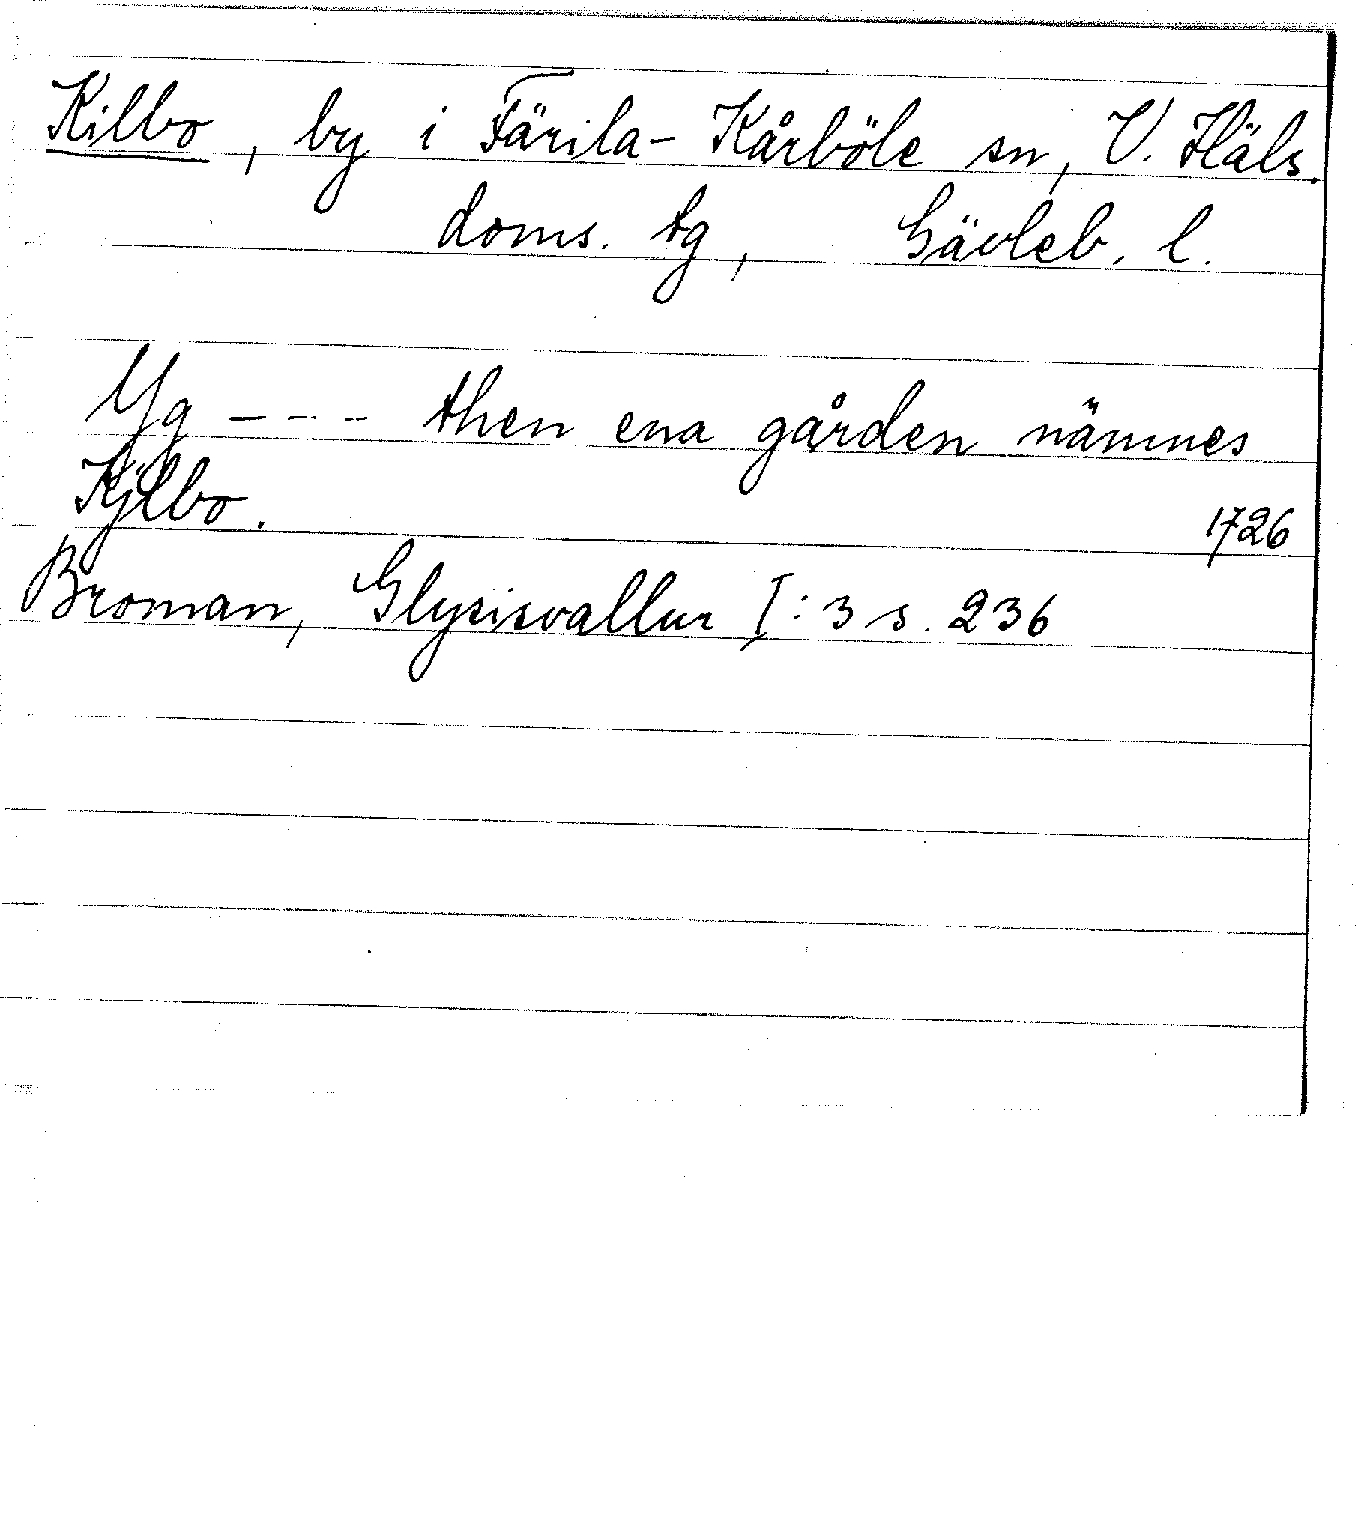 Kilbo, by i Färila-Kårböle sn, V. Häls.
doms. tg, Gävleb. l.
Yg - - - then ena gården nämnes
Kÿlbo. 1726
Broman, Glysisvallur I:3 s. 236